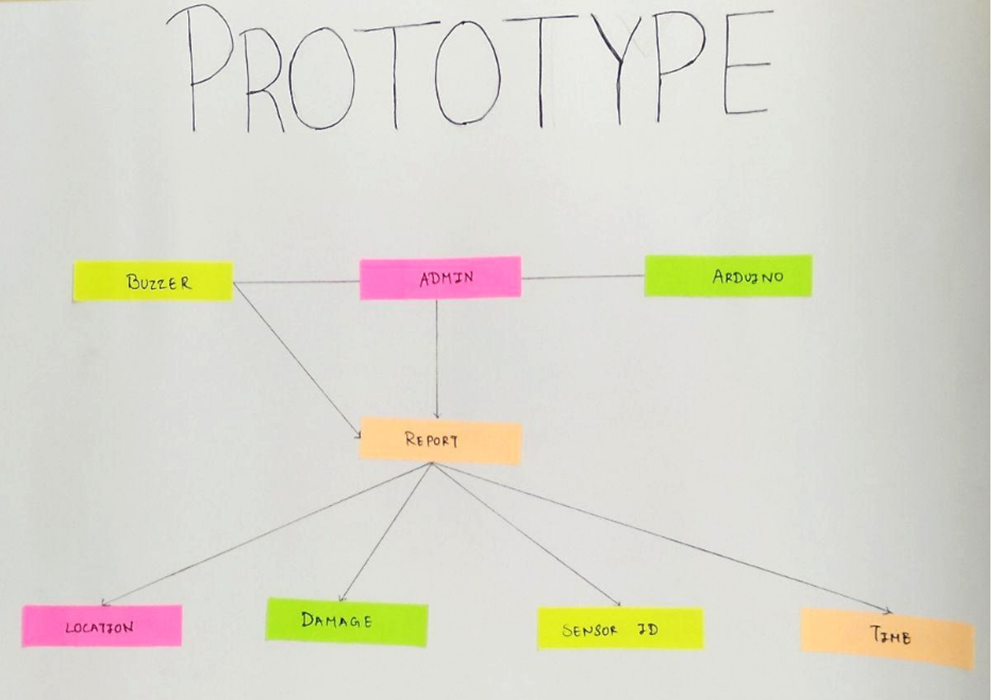 PROTOTYPE
BUZZER
ADMIN
ARDUINO
REPORT
LOCATION
DAMAGE
SENSOR ID
TIME